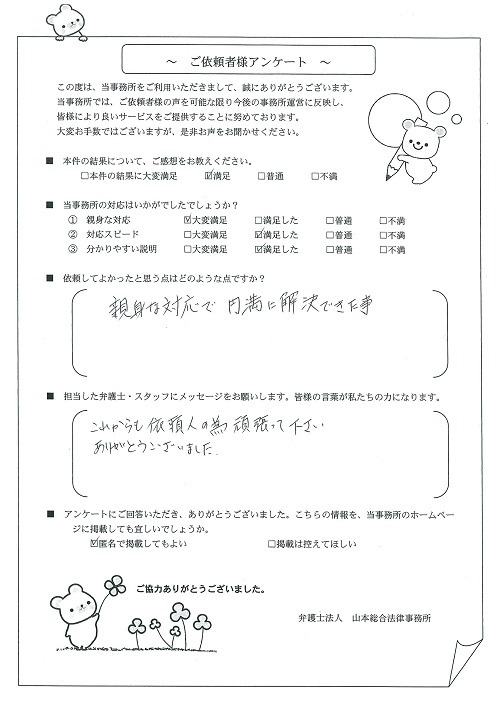 ～ ご依頼者様アンケート ～
この度は、当事務所をご利用いただきまして、誠にありがとうございます。
当事務所では、ご依頼者様の声を可能な限り今後の事務所運営に反映し、
皆様により良いサービスをご提供することに努めております。
大変お手数ではございますが、是非お声をお聞かせください。
■ 本件の結果について、ご感想をお教えください。
□本件の結果に大変満足 ☑満足 □普通 □不満
■ 当事務所の対応はいかがでしたでしょうか？
① 親身な対応 ☑大変満足 □満足した □普通 □不満
② 対応スピード □大変満足 ☑満足した □普通 □不満
③ 分かりやすい説明 □大変満足 ☑満足した □普通 □不満
■ 依頼してよかったと思う点はどのような点ですか？
親身な対応で 円満に解決できた事
■ 担当した弁護士・スタッフにメッセージをお願いします。皆様の言葉が私たちの力になります。
これからも依頼人の為頑張って下さい
ありがとうございました.
■ アンケートにご回答いただき、ありがとうございました。こちらの情報を、当事務所のホームペー
ジに掲載しても宜しいでしょうか。
☑匿名で掲載してもよい □掲載は控えてほしい
ご協力ありがとうございました。
弁護士法人 山本総合法律事務所